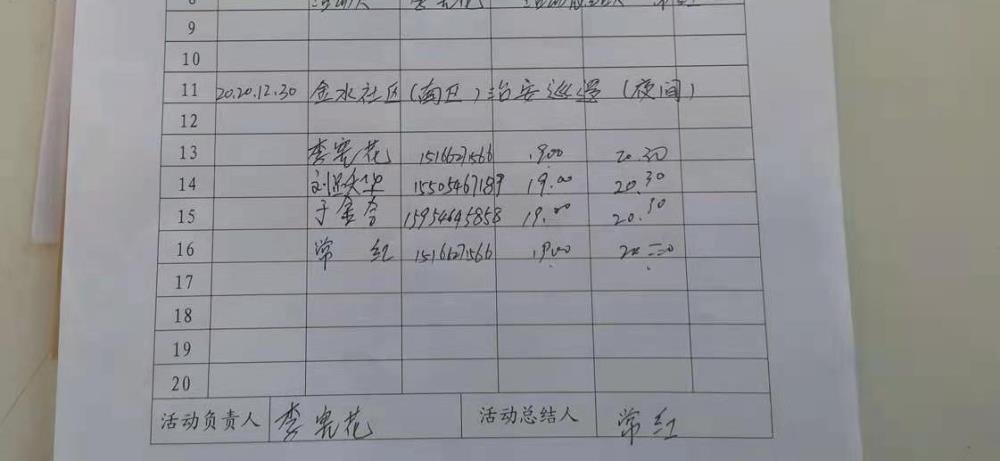 8
9
10
11 20.20.12.30 金水社区(南区)治安巡逻(夜间)
12
13 李宪花 15166271566 19:00 20.30
14 15505467189 19.00 20.30
15 于金香 15954645858 19.00 20.30
16 常红 15166271566 19:00 20:30
17
18
19
20
活动负责人 李宪花 活动总结人 常红